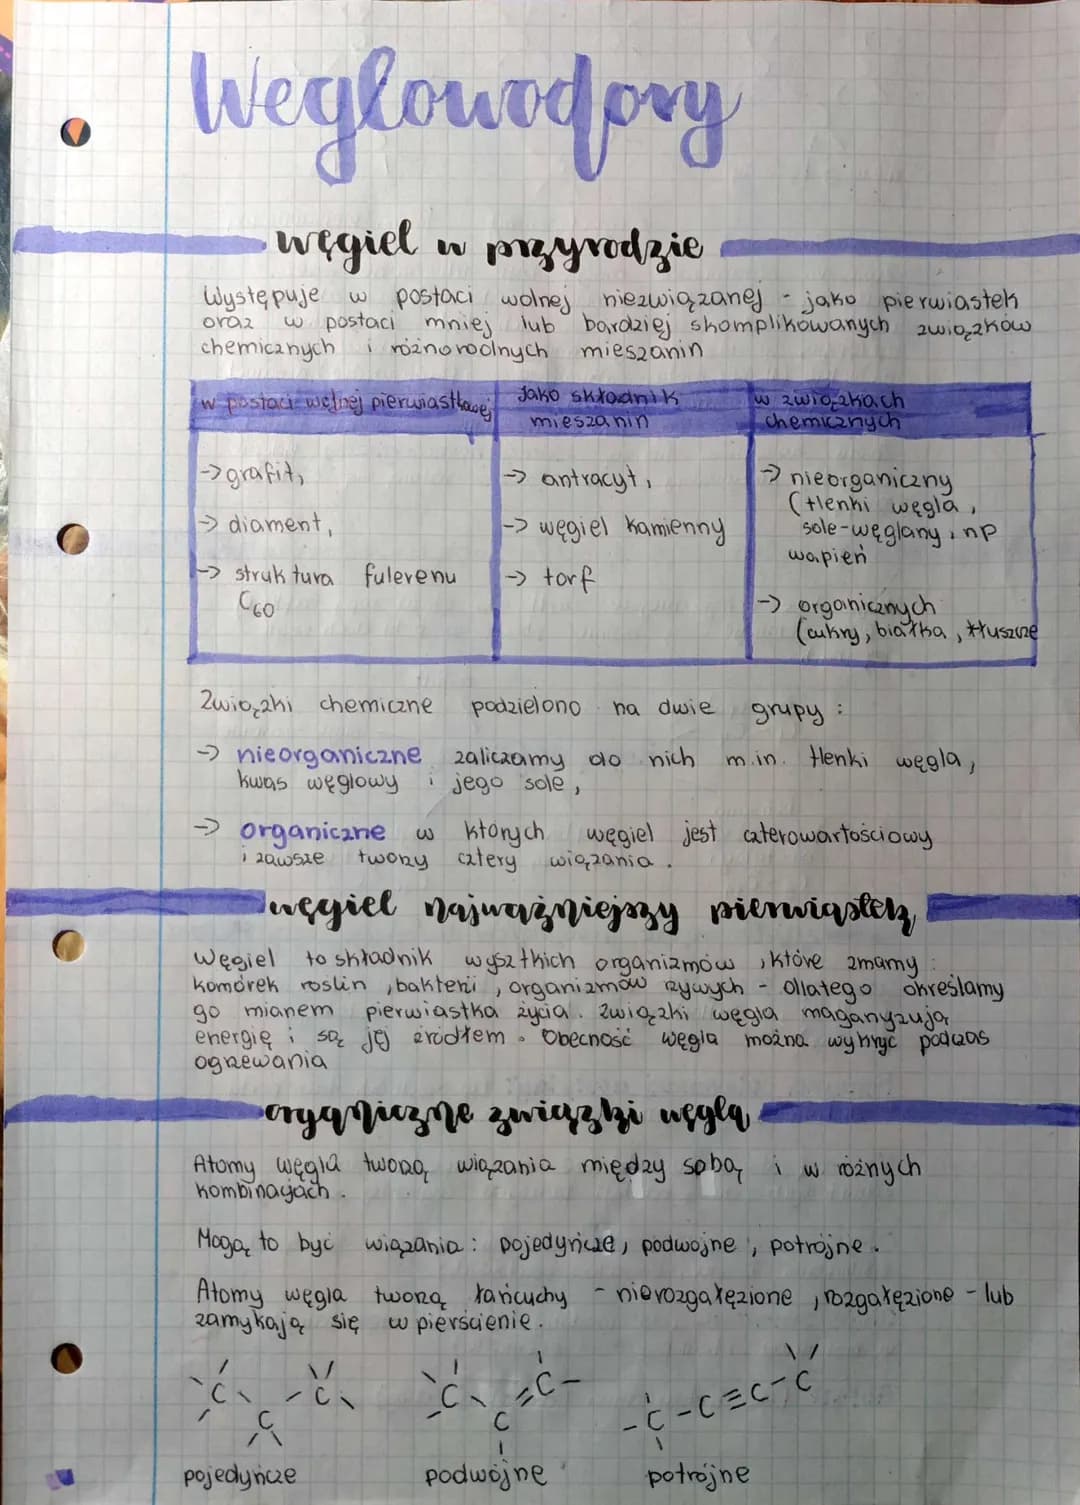 Weglowodory
węgiel w przyrodzie
Występuje w postaci wolnej niezwiązanej - jako pierwiastek
oraz w postaci mniej lub bardziej skomplikowanych związków
chemicznych i różnorodnych mieszanin
w postaci wolnej pierwiastkowej
→ grafit,
→ diament,
→ struktura fulerenu
C60
Jako składnik
mieszanin
→ antracyt,
→ węgiel kamienny
→ torf
w związkach
chemicznych
→ nieorganiczny
(tlenki węgla,
sole-węglany, np
wapień
→ organicznych
(cukry, białka, tłuszcze
Związki chemiczne podzielono na dwie grupy:
→ nieorganiczne zaliczamy do nich m.in. tlenki węgla,
kwas węglowy i jego sole,
→ organiczne w których węgiel jest czterowartościowy
i zawsze tworzy cztery wiązania.
węgiel najważniejszy pierwiastek
Węgiel to składnik wysztkich organizmów, które znamy:
komórek roślin, bakterii, organizmów żywych - dlatego określamy
go mianem pierwiastka życia. Związki węgla maganyzują
energię i są jej źródłem. Obecność węgla można wykryć podczas
ogrzewania
organiczne związki węgla
Atomy węgla tworzą wiązania między sobą i w różnych
kombinacjach.
Mogą to być wiązania: pojedyńcze, podwójne, potrójne.
Atomy węgla tworzą łańcuchy - nierozgałęzione, rozgałęzione - lub
zamykają się w pierścienie.
C C C
C C = C
- C - C ≡ C - C
pojedyńcze podwójne potrójne